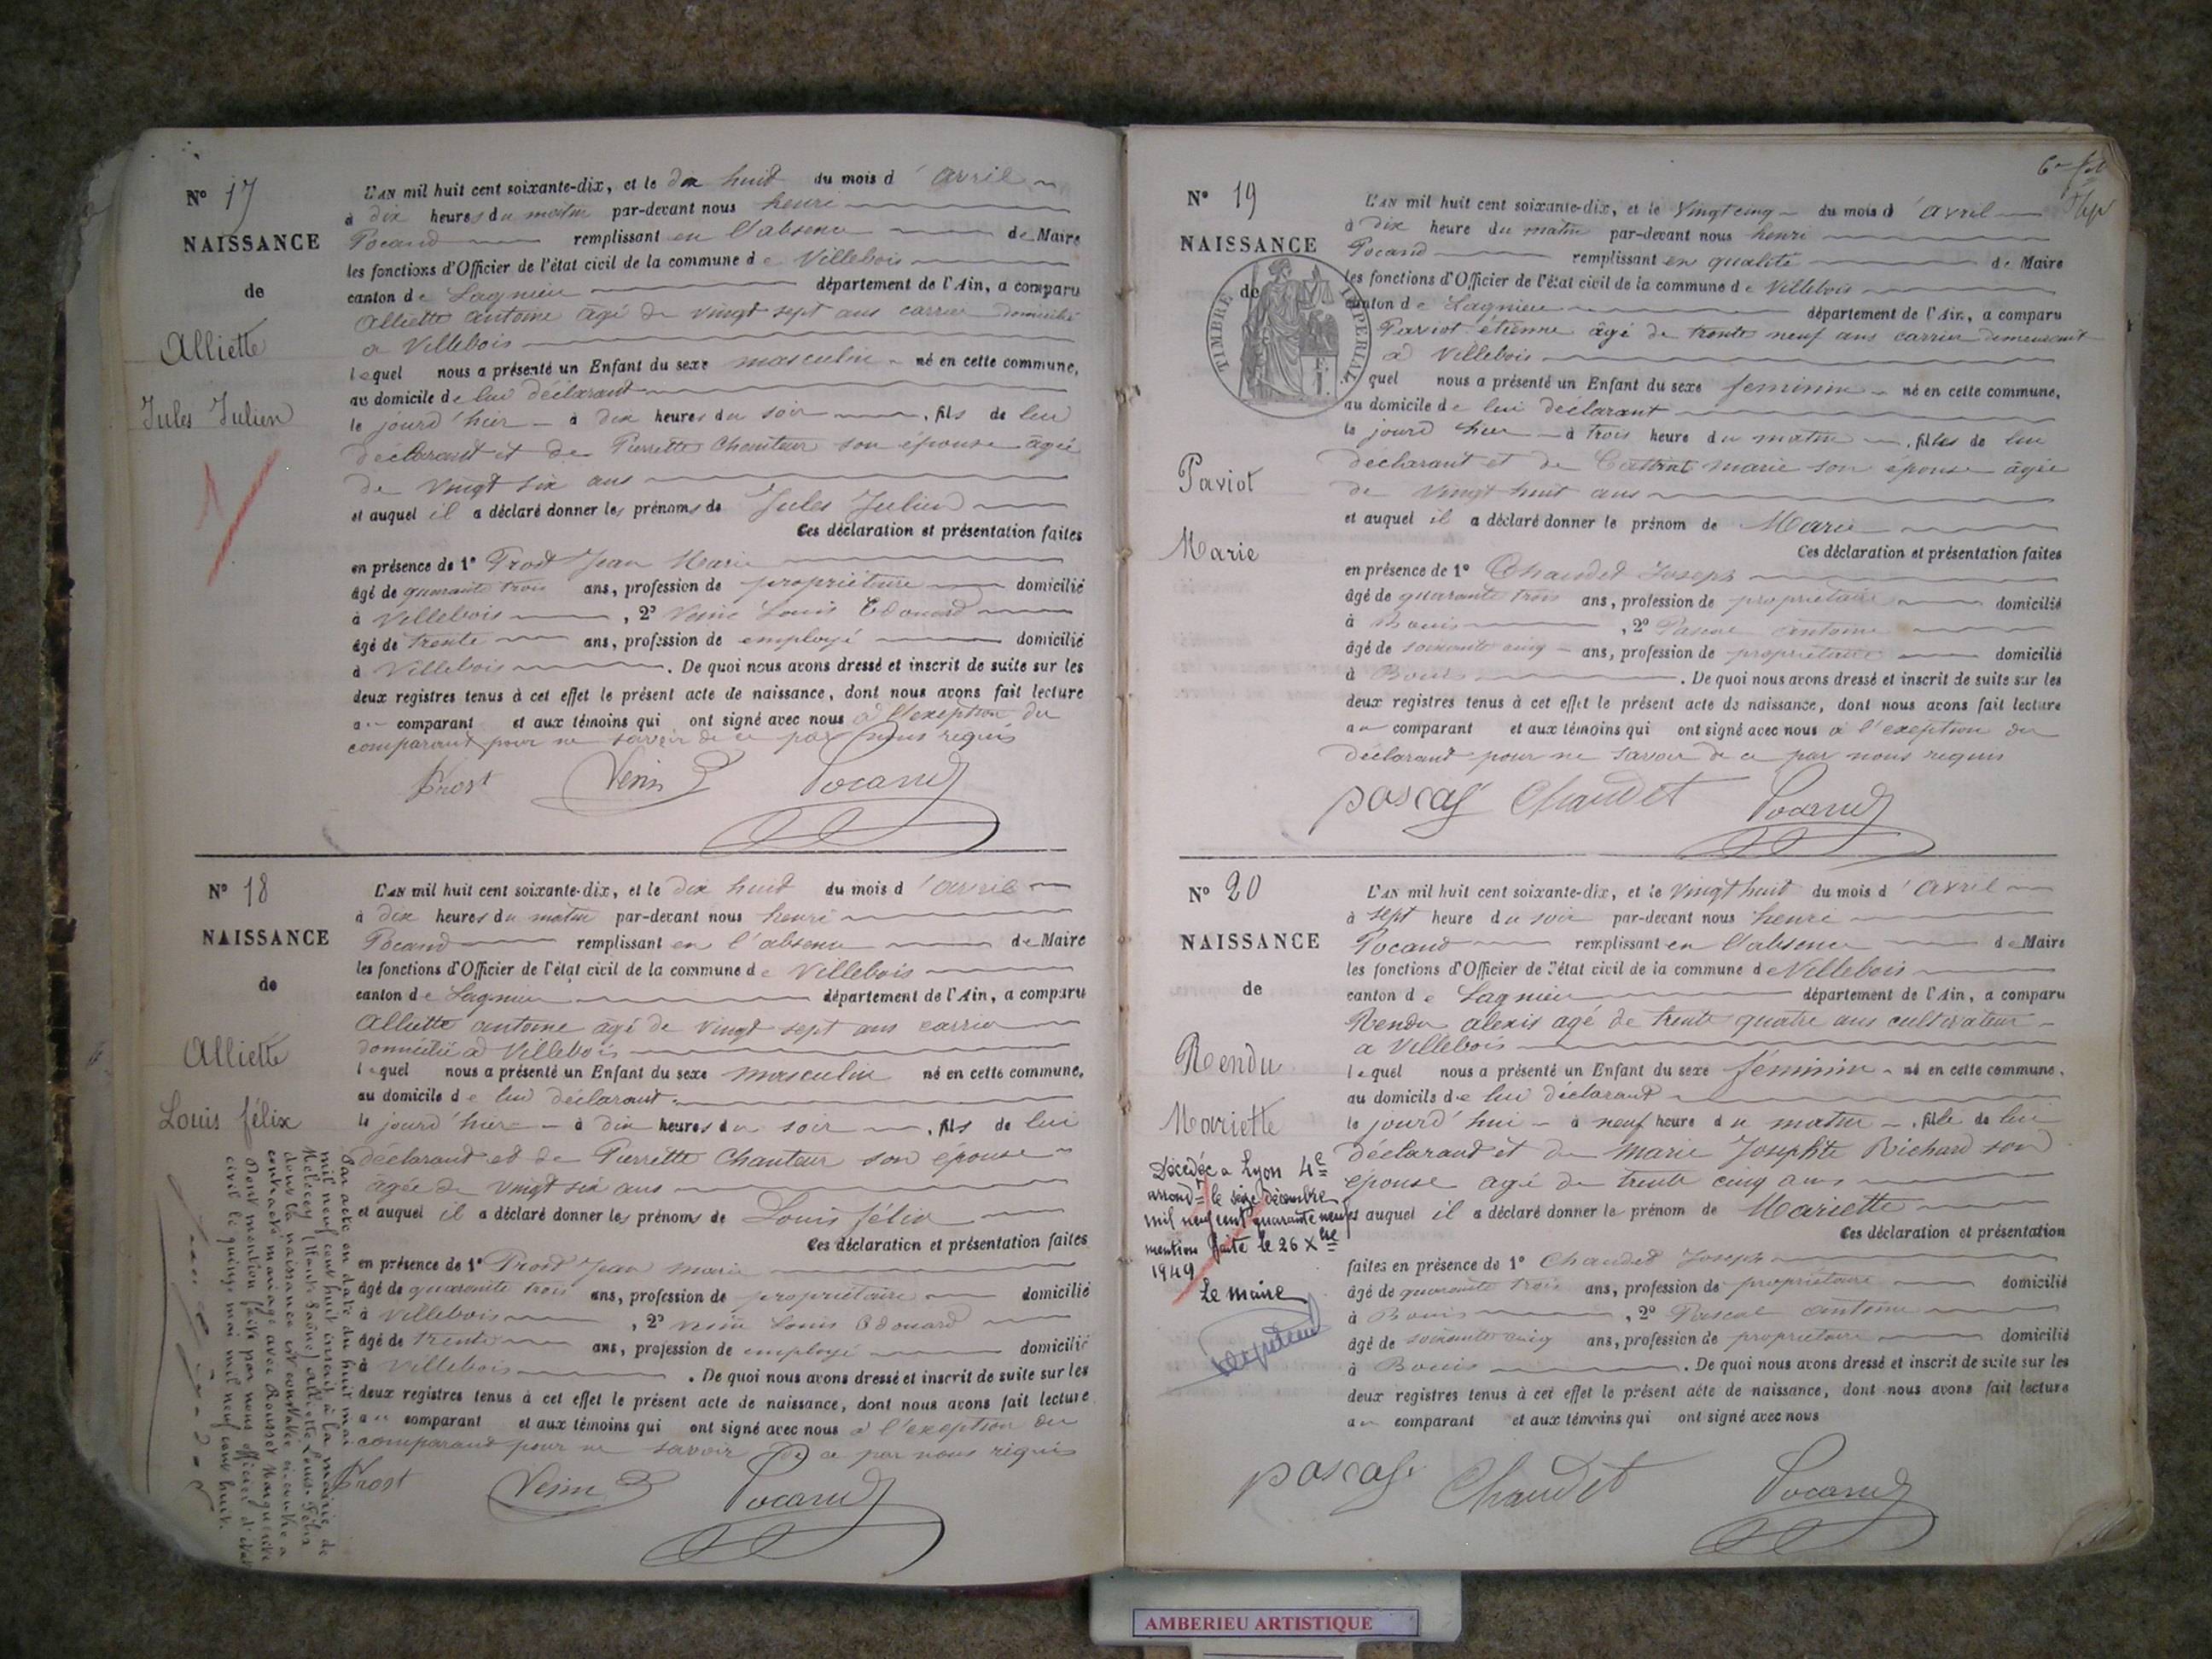 N° 17
NAISSANCE
de
Alliette
Jules Julien
L'AN mil huit cent soixante-dix, et le dix huit du mois d'avril
à dix heures du matin par-devant nous henri
Pocand remplissant en l'absence de Maire
les fonctions d'Officier de l'état civil de la commune de Villebois
canton de Lagnieu département de l'Ain, a comparu
Alliette antoine âgé de vingt sept ans carrier domicilié
a Villebois
lequel nous a présenté un Enfant du sexe masculin né en cette commune,
au domicile de lui déclarant
le jourd'hier à dix heures du soir, fils de lui
déclarant et de Pierrette Chanteur son épouse âgée
de vingt six ans
et auquel il a déclaré donner les prénoms de Jules Julien
Ces déclaration et présentation faites
en présence de 1° Prost Jean Marie
âgé de quarante trois ans, profession de propriétaire domicilié
à Villebois, 2° Louis Edouard
âgé de trente ans, profession de employé domicilié
à Villebois. De quoi nous avons dressé et inscrit de suite sur les
deux registres tenus à cet effet le présent acte de naissance, dont nous avons fait lecture
au comparant et aux témoins qui ont signé avec nous à l'exeption du
comparant pour ne savoir de ce par nous requis
Prost Pocand
N° 18
NAISSANCE
de
Alliette
Louis félix
L'AN mil huit cent soixante-dix, et le dix huit du mois d'avril
à dix heures du matin par-devant nous henri
Pocand remplissant en l'absence de Maire
les fonctions d'Officier de l'état civil de la commune de Villebois
canton de Lagnieu département de l'Ain, a comparu
Alliette antoine âgé de vingt sept ans carrier
domicilié à Villebois
lequel nous a présenté un Enfant du sexe masculin né en cette commune,
au domicile de lui déclarant
le jourd'hier à dix heures du soir, fils de lui
déclarant et de Pierrette Chanteur son épouse
âgée de vingt six ans
et auquel il a déclaré donner les prénoms de Louis félix
Ces déclaration et présentation faites
en présence de 1° Prost Jean marie
âgé de quarante trois ans, profession de propriétaire domicilié
à Villebois, 2° Louis Edouard
âgé de trente ans, profession de employé domicilié
à Villebois. De quoi nous avons dressé et inscrit de suite sur les
deux registres tenus à cet effet le présent acte de naissance, dont nous avons fait lecture
au comparant et aux témoins qui ont signé avec nous à l'exeption du
comparant pour ne savoir de ce par nous requis
Prost Pocand
Par acte en date du huit mai
mil neuf cent huit inscrit à la mairie de
Melecey (Haute Saône) Alliette Louis Félix
dont la naissance est constatée ci-contre a
contracté mariage avec Rousset Marguerite
Dont mention faite par nous officier d'état
civil le quinze mai mil neuf cent huit.
N° 19
NAISSANCE
de
TIMBRE IMPERIAL
Paviot
Marie
L'AN mil huit cent soixante-dix, et le Vingt cinq du mois d'avril
à dix heure du matin par-devant nous henri
Pocand remplissant en qualité de Maire
les fonctions d'Officier de l'état civil de la commune de Villebois
canton de Lagnieu département de l'Ain, a comparu
Paviot étienne âgé de trente neuf ans carrier demeurant
à Villebois
quel nous a présenté un Enfant du sexe feminin né en cette commune,
au domicile de lui déclarant
le jourd'hier à trois heure du matin, filles de lui
déclarant et de marie son épouse âgée
de vingt huit ans
et auquel il a déclaré donner le prénom de Marie
Ces déclaration et présentation faites
en présence de 1° Chaudet Joseph
âgé de quarante trois ans, profession de propriétaire domicilié
à Bouis, 2° Pascal antoine
âgé de soixante cinq ans, profession de propriétaire domicilié
à Bouis. De quoi nous avons dressé et inscrit de suite sur les
deux registres tenus à cet effet le présent acte de naissance, dont nous avons fait lecture
au comparant et aux témoins qui ont signé avec nous à l'exeption du
déclarant pour ne savoir de ce par nous requis
pascal Chaudet Pocand
N° 20
NAISSANCE
de
Rendu
Mariette
Décédée a Lyon 4e
arrond= le seize décembre
mil neuf cent quarante neuf
mention faite le 26 Xbre
1949
Le maire
L'AN mil huit cent soixante-dix, et le vingt huit du mois d'avril
à sept heure du soir par-devant nous henri
Pocand remplissant en l'absence de Maire
les fonctions d'Officier de l'état civil de la commune de Villebois
canton de Lagnieu département de l'Ain, a comparu
Rendu alexis agé de trente quatre ans cultivateur
a Villebois
lequel nous a présenté un Enfant du sexe féminin né en cette commune,
au domicile de lui déclarant
le jourd'hui à neuf heure du matin, fille de lui
déclarant et de marie Josephte Richard son
épouse agé de trente cinq ans
et auquel il a déclaré donner le prénom de Mariette
Ces déclaration et présentation
faites en présence de 1° Chaudet Joseph
âgé de quarante trois ans, profession de propriétaire domicilié
à Bouis, 2° Pascal antoine
âgé de soixante cinq ans, profession de propriétaire domicilié
à Bouis. De quoi nous avons dressé et inscrit de suite sur les
deux registres tenus à cet effet le présent acte de naissance, dont nous avons fait lecture
au comparant et aux témoins qui ont signé avec nous
pascal Chaudet Pocand
AMBERIEU ARTISTIQUE